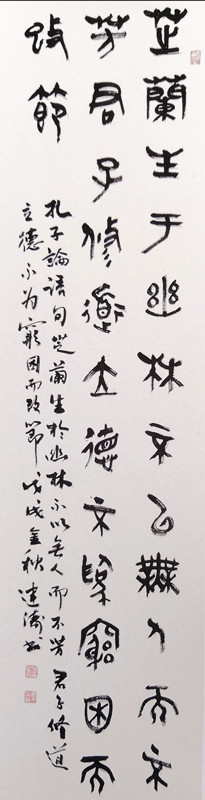 芝蘭生于幽林不以無人而不
芳君子修道立德不為窮困而
改節
孔子論語句芝蘭生於幽林不以無人而不芳君子脩道
立德不為窮困而改節戊戌金秋